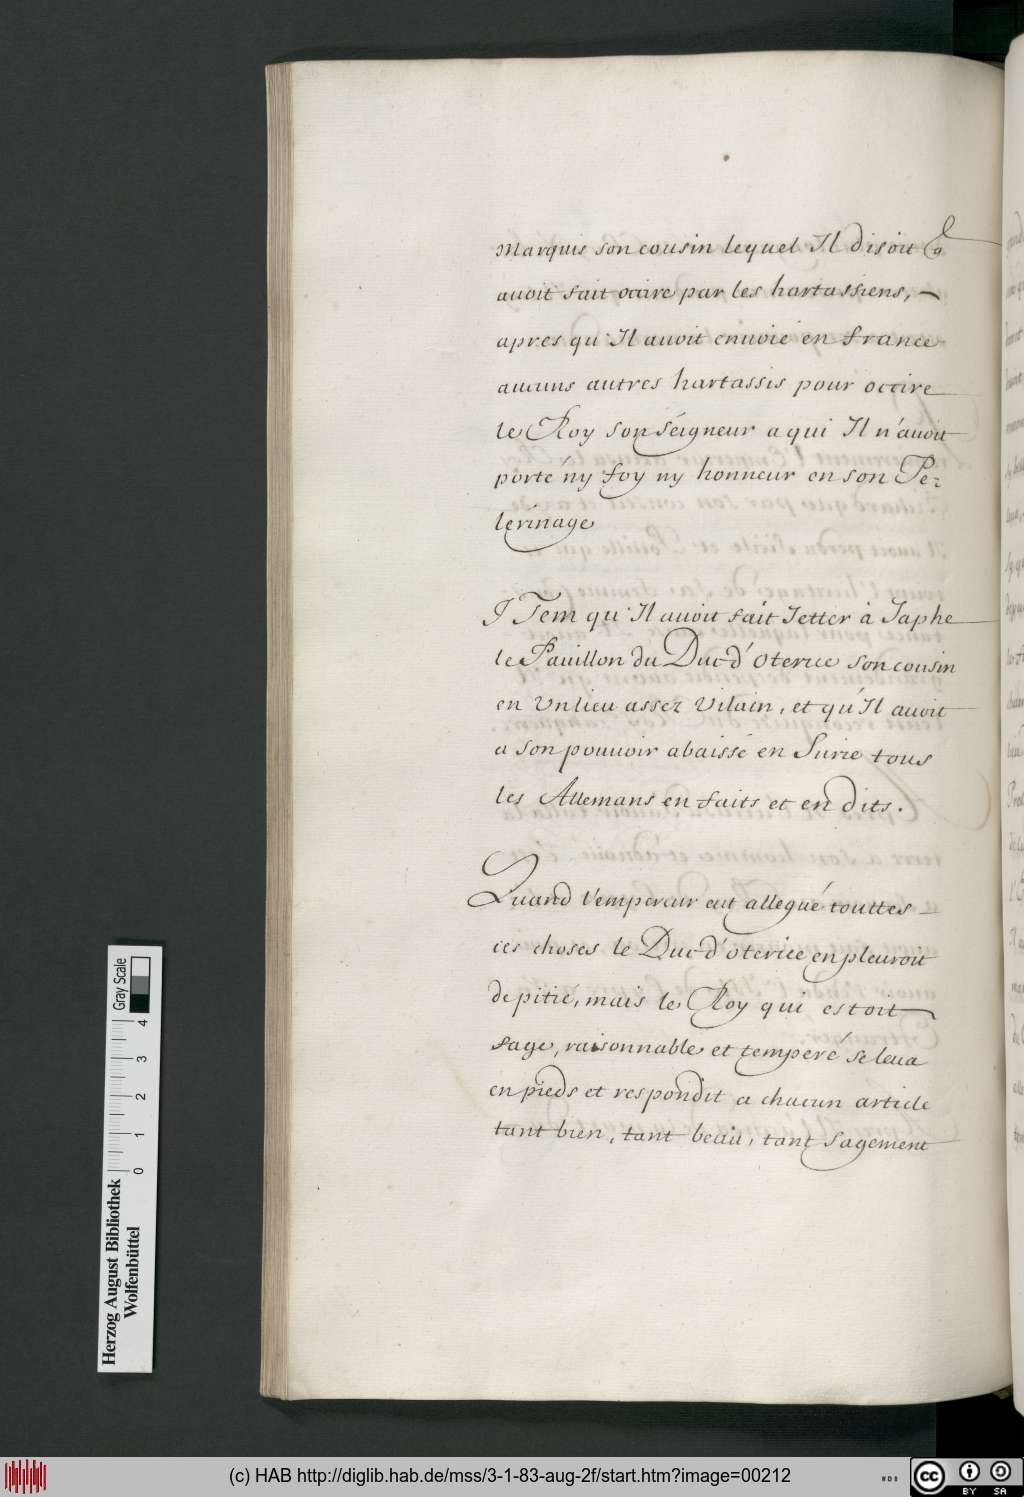 Marquis son cousin lequel Il disoit &
auoit fait occire par les hartassiens, –
apres qu'Il auoit enuoié en france
aucuns autres hartassis pour occire
le Roy son Séigneur a qui Il n'auoit
porté ny foy ny honneur en son Pe=
lerinage
ITem qu'Il auoit fait Jetter à Japhe
le Pauillon du Duc d'oterice son cousin
en Vn lieu assez Vilain, et qu'Il auoit
a son pouuoir abaissé en Surie tous
les Allemans en faits et en dits.
Quand l'empereur eut allegué touttes
ces choses le Duc d'oterice en pleuroit
de pitie, mais le Roy qui estoit
sage, raisonnable et temperé se leua
en pieds et respondit a chacun article
tant bien, tant beau, tant sagement
Gray Scale
0 1 2 3 4
Herzog August Bibliothek
Wolfenbüttel
(c) HAB http://diglib.hab.de/mss/3-1-83-aug-2f/start.htm?image=00212
WDB
cc
BY SA